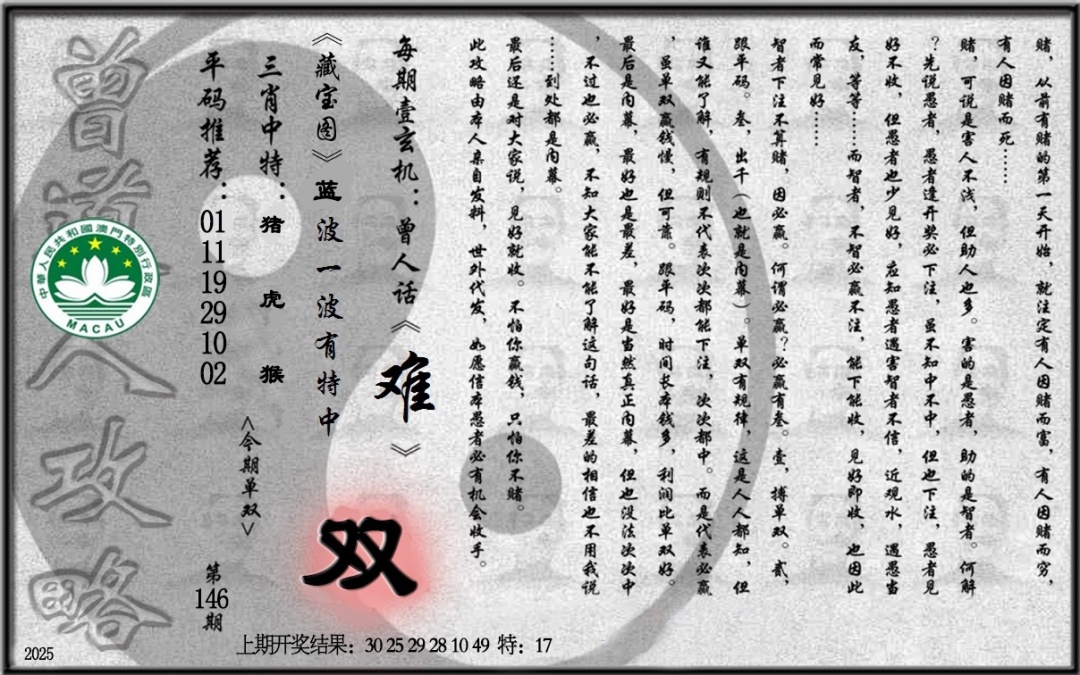 赌，从前有赌的第一天开始，就注定有人因赌而富，有人因赌而穷，
有人因赌而死……
赌，可说是害人不浅，但助人也多。害的是愚者，助的是智者。何解
？先说愚者，愚者逢开奖必下注，虽不知中不中，但也下注，愚者见
好不收，但愚者也少见好，应知愚者遇害智者不信，近观水，遇愚当
友，等等……而智者，不智必赢不注，能下能收，见好即收，也因此
而常见好……
智者下注不算赌，因必赢。何谓必赢？必赢有叁。壹，搏单双。贰，
跟平码。叁，出千（也就是内幕）。单双有规律，这是人人都知，但
谁又能了解，有规则不代表次次都能下注，次次都中。而是代表必赢
，虽单双赢钱慢，但可靠。跟平码，时间长本钱多，利润比单双好。
最后是内幕，最好也是最差，最好是当然真正内幕，但也没法次次中
，不过也必赢，不知大家能不能了解这句话，最差的相信也不用我说
……到处都是内幕。
最后还是对大家说，见好就收。不怕你赢钱，只怕你不赌。
此攻略由本人亲自发料，世外代发，如愿信本愚者必有机会收手。
每期壹玄机：曾人话《难》
《藏宝图》蓝波一波有特中
双
三肖中特：猪 虎 猴
<今期单双>
平码推荐：01 11 19 29 10 02
第146期
曾道人攻略
中華人民共和國澳門特別行政區
MACAU
上期开奖结果：30 25 29 28 10 49 特：17
2025